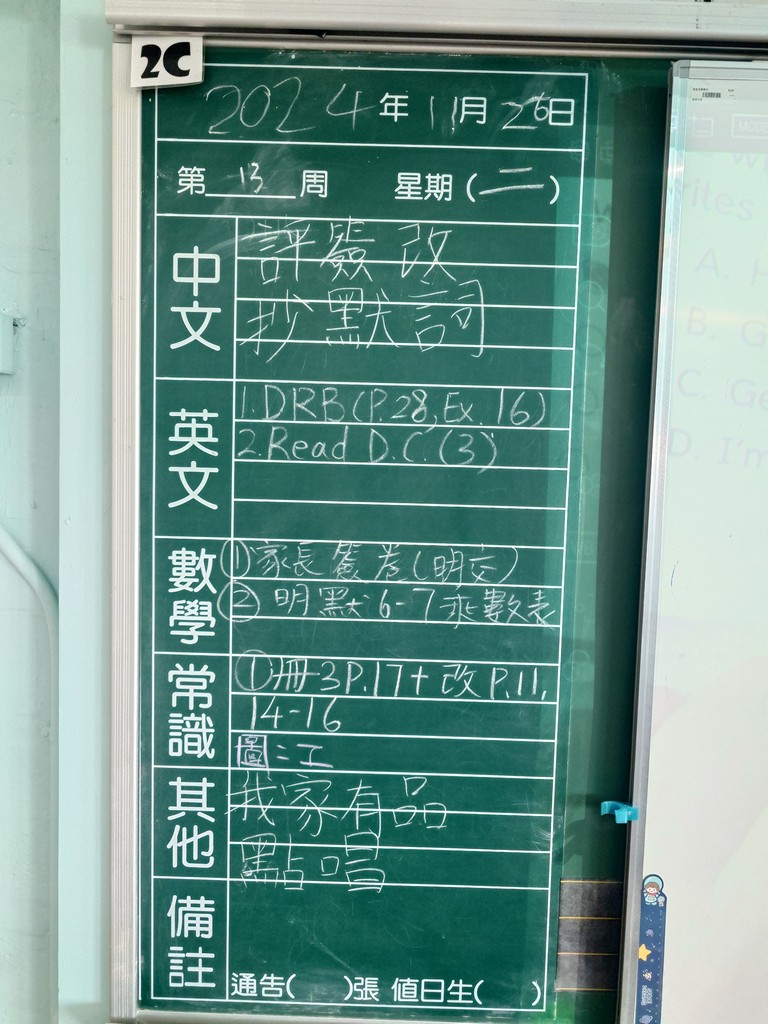 2C
2024年11月26日
第13周 星期(二)
中文
評簽改
抄默詞
英文
1.DRB(P.28,Ex.16)
2.Read D.C.(3)
數學
①家長簽卷(明交)
②明默6-7乘數表
常識
①冊3P.17+改P.11,
14-16
圖:工
其他
我家有品
點唱
備註
通告( )張 值日生( )
MODE
rites
A. H
B. G
C. Ge
D. I'm